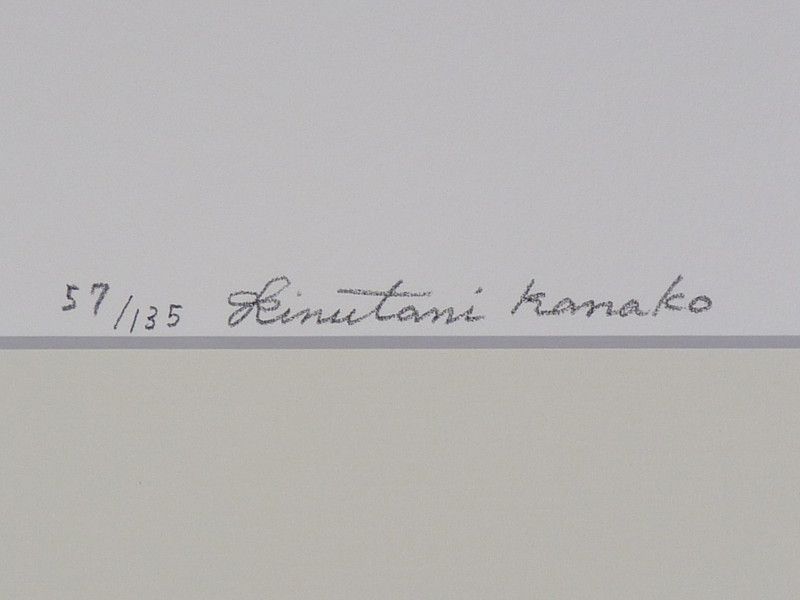 57/135 Kinutani Kanako